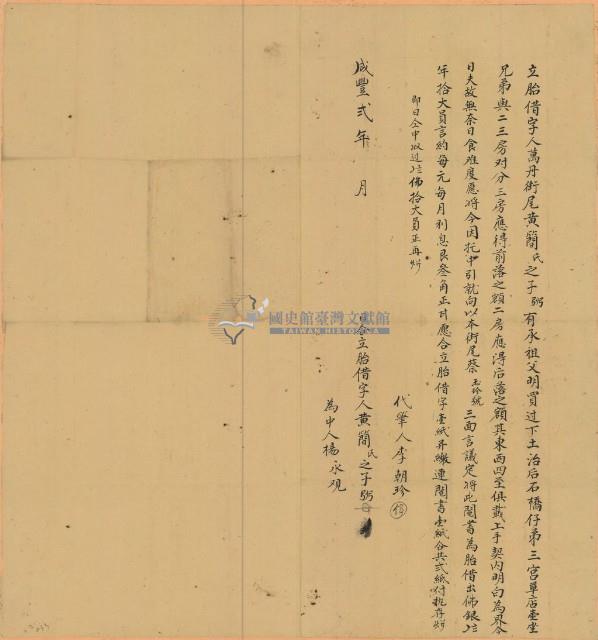 立胎借字人萬丹街尾黃簡氏之子弼有承祖父明買过下土治后石橋仔弟三宮草店壹坐
兄弟與二三房对分三房應得前落之額二房應得后落之額其東西四至俱載上手契內明白為界今
日夫故無奈日食难度愿將今因托中引就向以本街尾蔡玉珍號三面言議定將此鬮書為胎借出佛銀
年拾大員言約每元每月利息艮叁角正甘愿合立胎借字壹紙并繳連鬮書壹紙合共弍紙付执存炤
即日仝中收过佛拾大員正再炤
代筆人李朝珍
咸豐弍年 月
立胎借字人黃簡氏之子弼
為中人楊永观
國史館臺灣文獻館
TAIWAN HISTORICA